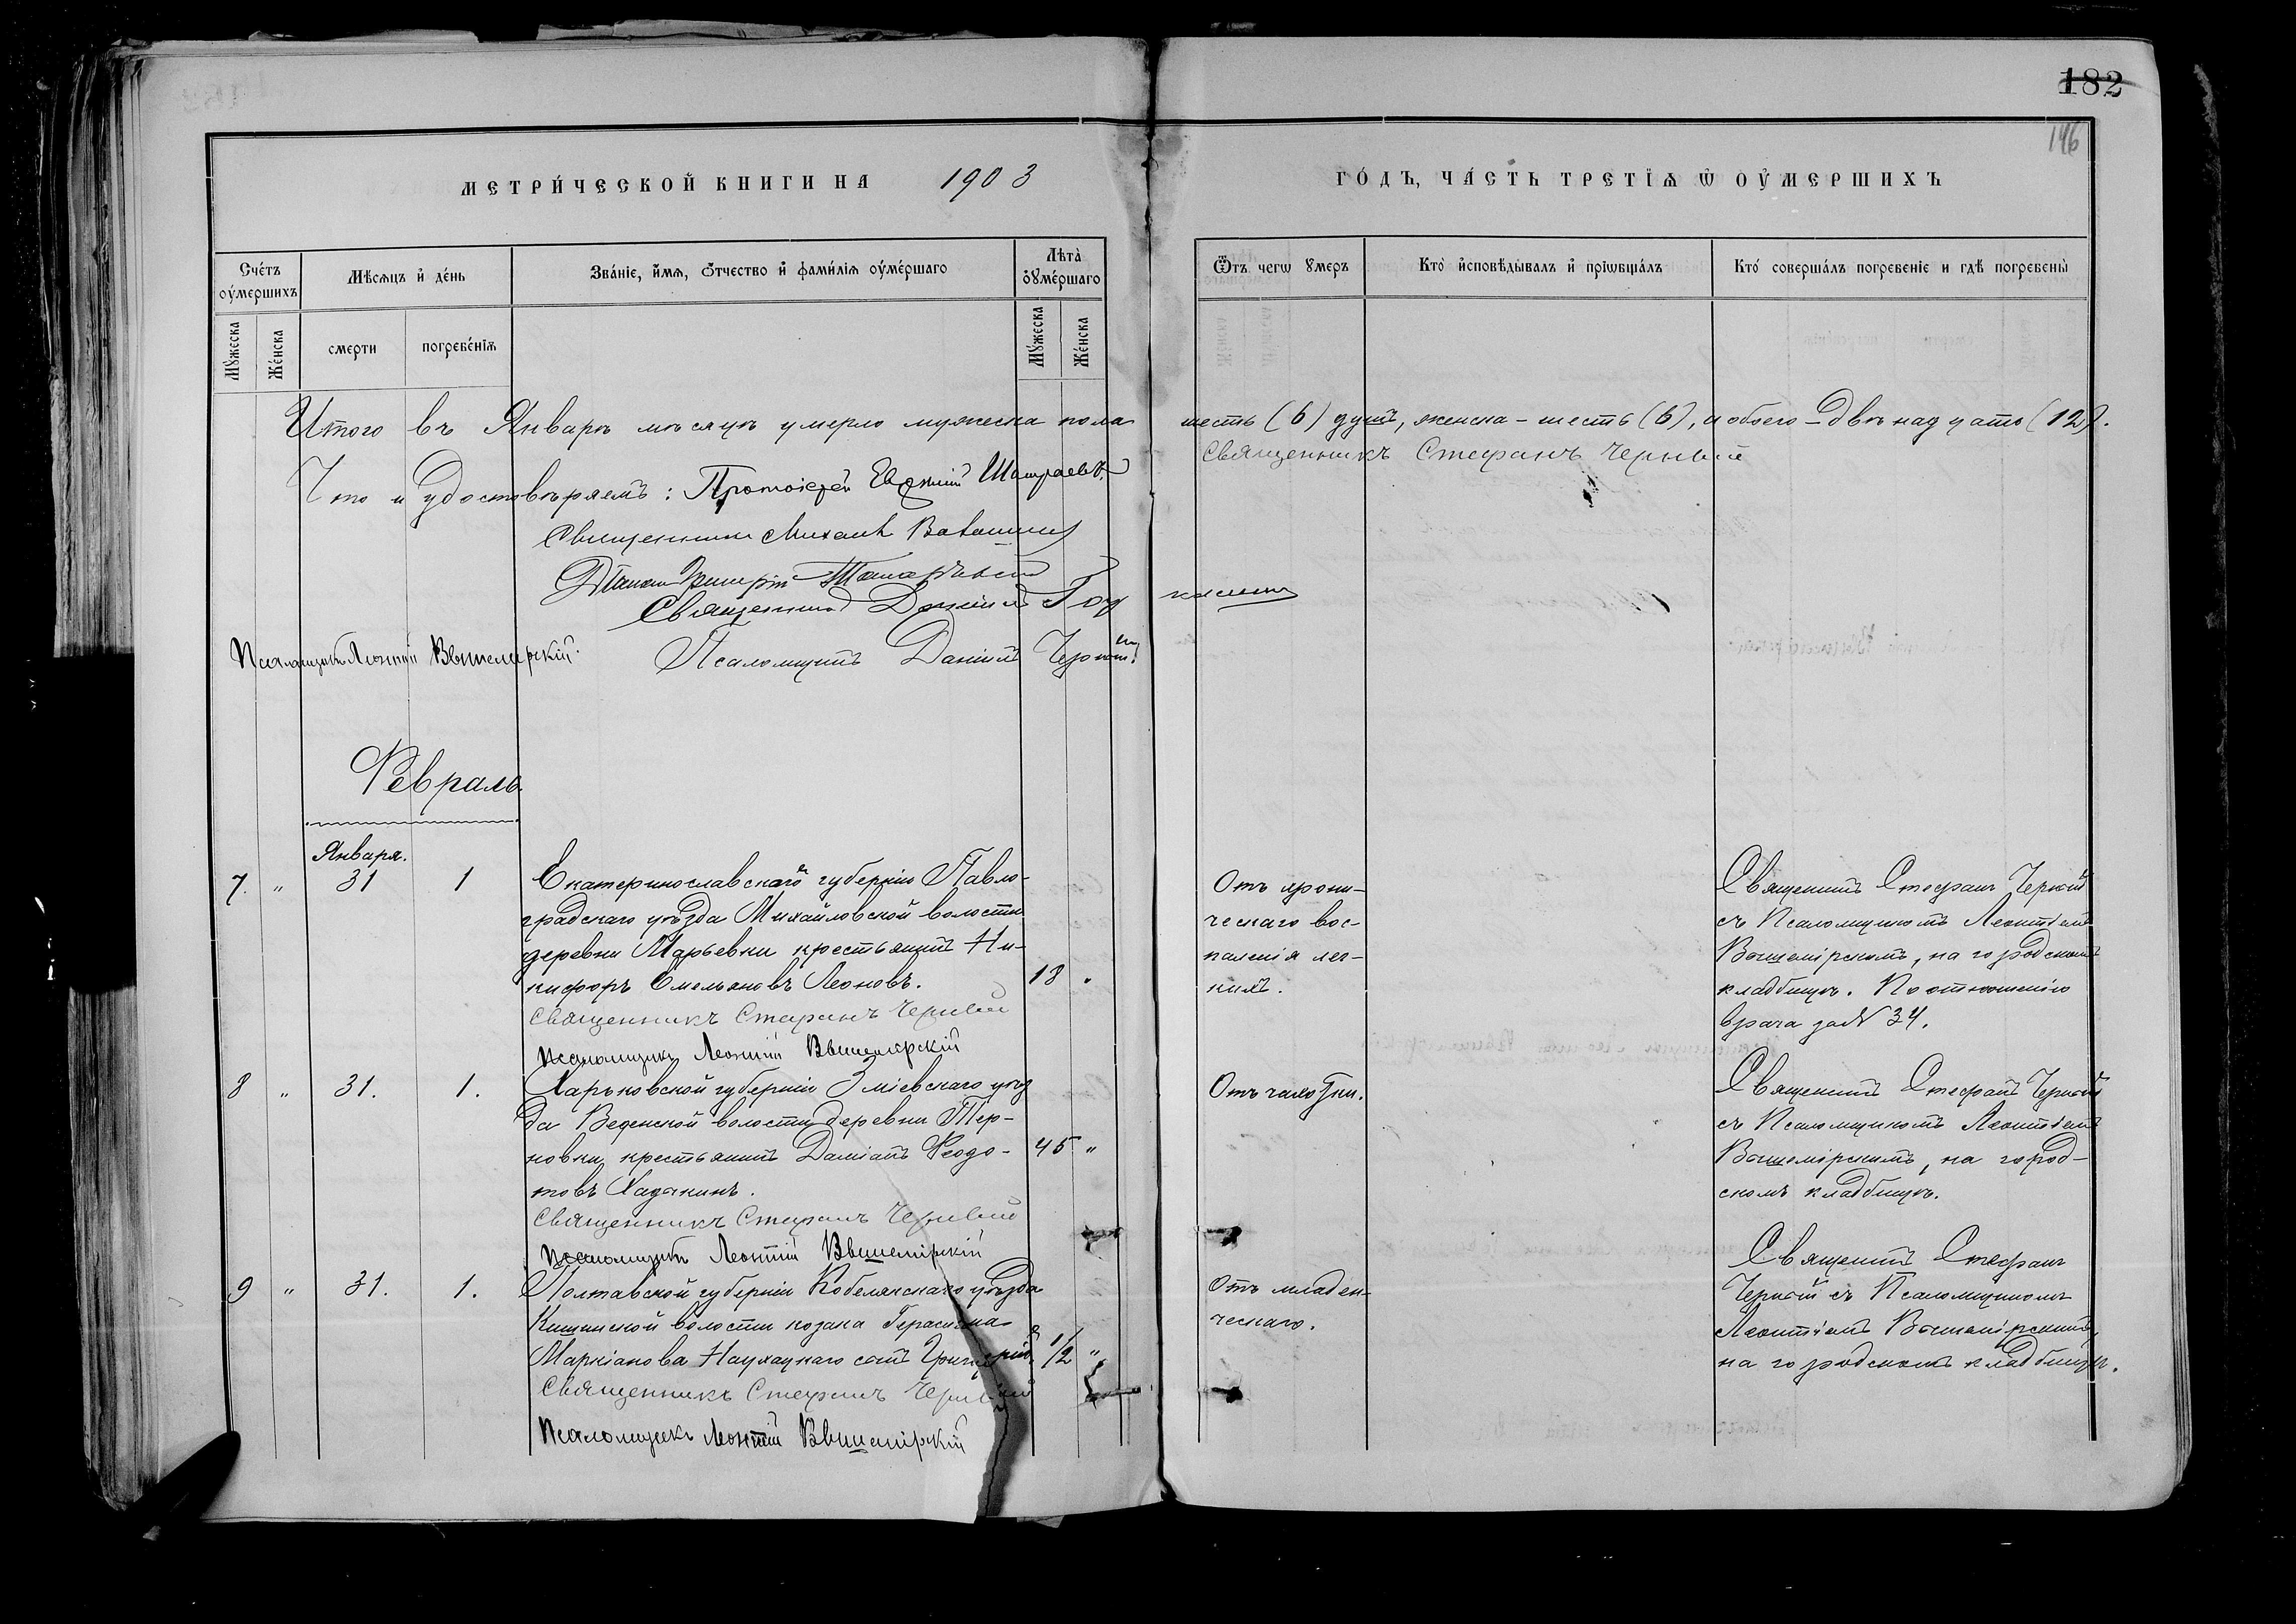 182
146
МЕТРИ́ЧЕСКОЙ КНИГИ НА 1903 ГО́ДЪ, ЧА́СТЬ ТРЕТІѦ Ѡ ОУ҆МЕРШИХЪ
Сче́тъ оу҆ме́ршихъ
Мѣ́сяцъ и҆ де́нь
Зва́ніе, и҆́мя, ѻ҆́тчество и҆ фами́лія оу҆ме́ршаго
Лѣта̀ оу҆ме́ршаго
Ѿъ чегѡ ꙋмеръ
Кто̀ и҆сповѣ́дывалъ и҆ прїѡбща́лъ
Кто́ соверша́лъ погребеніе и гдѣ̀ погребены̀
Му́жеска
Же́нска
смерти
погребе́нїѧ
Му́жеска
Же́нска
Итого въ Январѣ мѣсяцѣ умерло мужеска пола шесть (6) душъ, женска – шесть (6), и обоего – двѣнадцать (12).
Священникъ Стефанъ Черный
Что и удостовѣряемъ: Протоіерей Евѳимій
Священникъ Михаилъ
Священникъ Даніилъ
Псаломщикъ Леонтій Вышемірскій.
Псаломщикъ Даніилъ
Февраль
Января.
7. " 31 1
Екатеринославской губерніи Павло-
градскаго уѣзда Михайловской волости
деревни Марьевки крестьянинъ Ни-
кифоръ Омельяновъ Леоновъ.
18 "
Священникъ Стефанъ Черный
Псаломщикъ Леонтій Вышемірскій
Отъ хрони-
ческаго вос-
паленія лег-
кихъ.
Священникъ Стефанъ Черный
съ Псаломщикомъ Леонтіемъ
Вышемірскимъ, на городскомъ
кладбищѣ. По отношенію
врача за № 34.
8 " 31. 1.
Харьковской губерніи Зміевскаго уѣз
да Веденской волости деревни Тер-
новки крестьянинъ Даміанъ Ѳеодо-
товъ Хадакинъ.
45 "
Священникъ Стефанъ Черный
Псаломщикъ Леонтій Вышемірскій
Отъ чахотки.
Священникъ Стефанъ Черный
съ Псаломщикомъ Леонтіемъ
Вышемірскимъ, на город-
скомъ кладбищѣ.
9 " 31. 1.
Полтавской губерніи Кобелякскаго уѣзда
Кишинской волости козака Герасима
Маркіанова сынъ Григорій.
1/2 "
Священникъ Стефанъ Черный
Псаломщикъ Леонтій Вышемірскій
Отъ младен-
ческаго.
Священникъ Стефанъ
Черный съ Псаломщикомъ
Леонтіемъ Вышемірскимъ,
на городскомъ кладбищѣ.